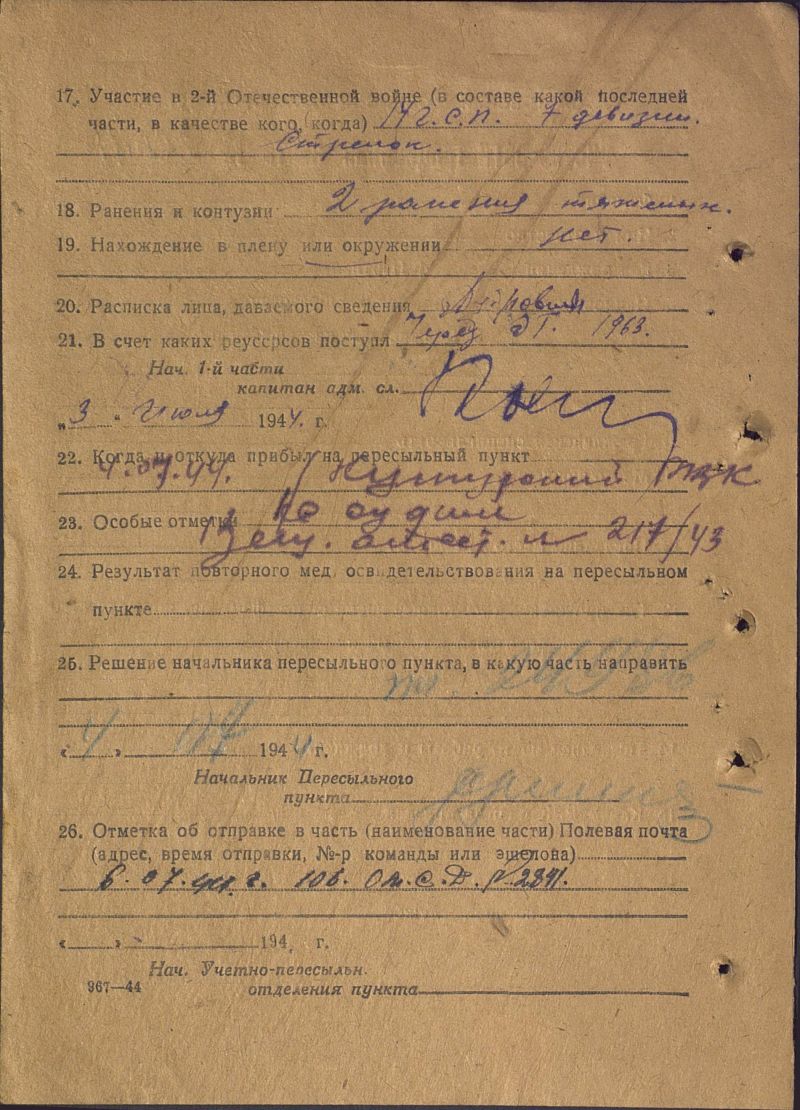 17. Участие в 2-й Отечественной войне (в составе какой последней
части, в качестве кого, когда) 14 г.с.п. 7 девизии.
Стрелок.
18. Ранения и контузии 2 ранения тяжелых.
19. Нахождение в плену или окружении нет.
20. Расписка лица, даваемого сведения
21. В счет каких реуссрсов поступл 1963.
Нач. 1-й части
капитан адм. сл.
„3“ Июля 1944. г.
22. Когда и откуда прибыл на пересыльный пункт
4.07.44.
23. Особые отметки
217/43
24. Результат повторного мед. освидетельствования на пересыльном
пункте
25. Решение начальника пересыльного пункта, в какую часть направить
«4» 07 1944 г.
Начальник Пересыльного
пункта
26. Отметка об отправке в часть (наименование части) Полевая почта
(адрес, время отправки, №-р команды или эшелона)
6.07.44 г. 106. От.С.Д. №2841.
« » 194 г.
Нач. Учетно-пересыльн.
967—44 отделения пункта